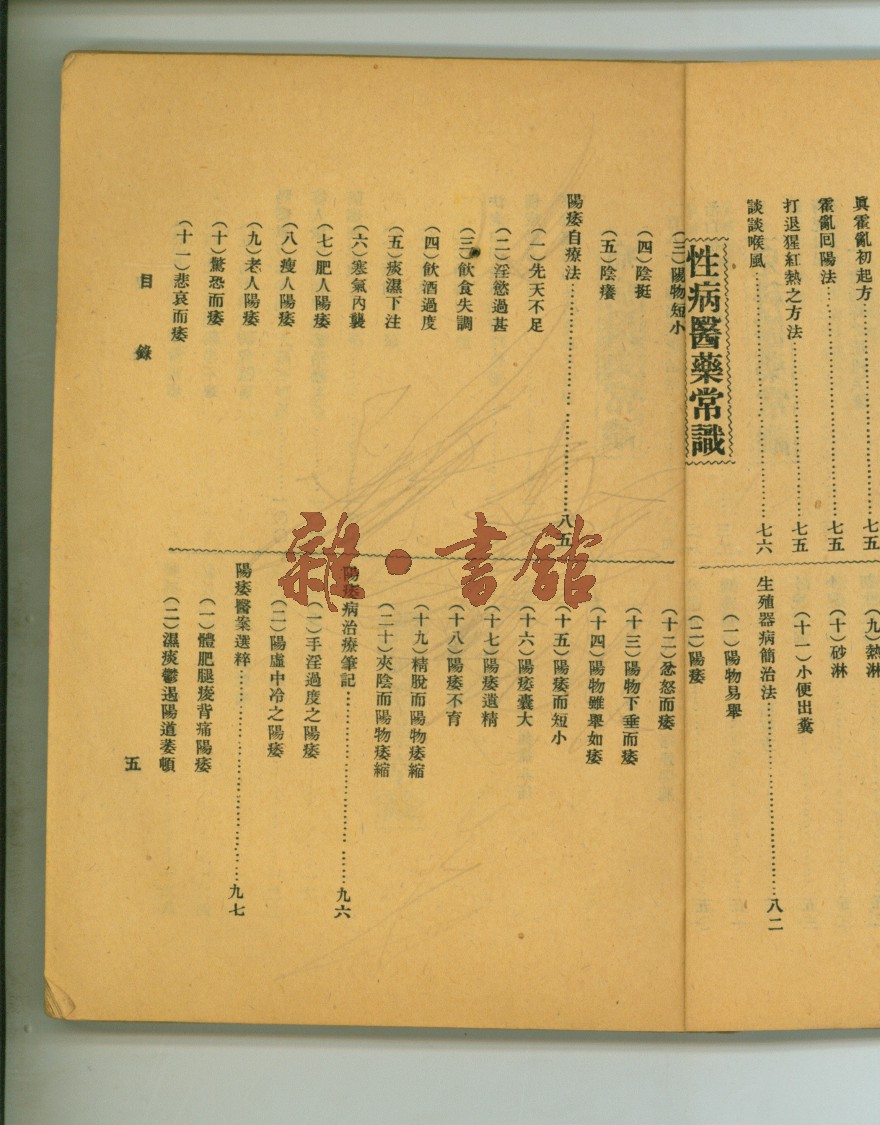 眞霍亂初起方……七五
霍亂回陽法……七五
打退猩紅熱之方法……七五
談談喉風……七六
性病醫藥常識
（九）熱淋
（十）砂淋
（十一）小便出糞
生殖器病簡治法……八二
（一）陽物易舉
（二）陽痿
（三）陽物短小
（四）陰挺
（五）陰癢
陽痿自療法……八五
（一）先天不足
（二）淫慾過甚
（三）飲食失調
（四）飲酒過度
（五）痰濕下注
（六）寒氣內襲
（七）肥人陽痿
（八）瘦人陽痿
（九）老人陽痿
（十）驚恐而痿
（十一）悲哀而痿
（十二）忿怒而痿
（十三）陽物下垂而痿
（十四）陽物雖舉如痿
（十五）陽痿而短小
（十六）陽痿囊大
（十七）陽痿遺精
（十八）陽痿不育
（十九）精脫而陽物痿縮
（二十）夾陰而陽物痿縮
陽痿病治療筆記……九六
（一）手淫過度之陽痿
（二）陽虛中冷之陽痿
陽痿醫案選粹……九七
（一）體肥腿痠背痛陽痿
（二）濕痰鬱遏陽道萎頓
目錄
五
雜·書館